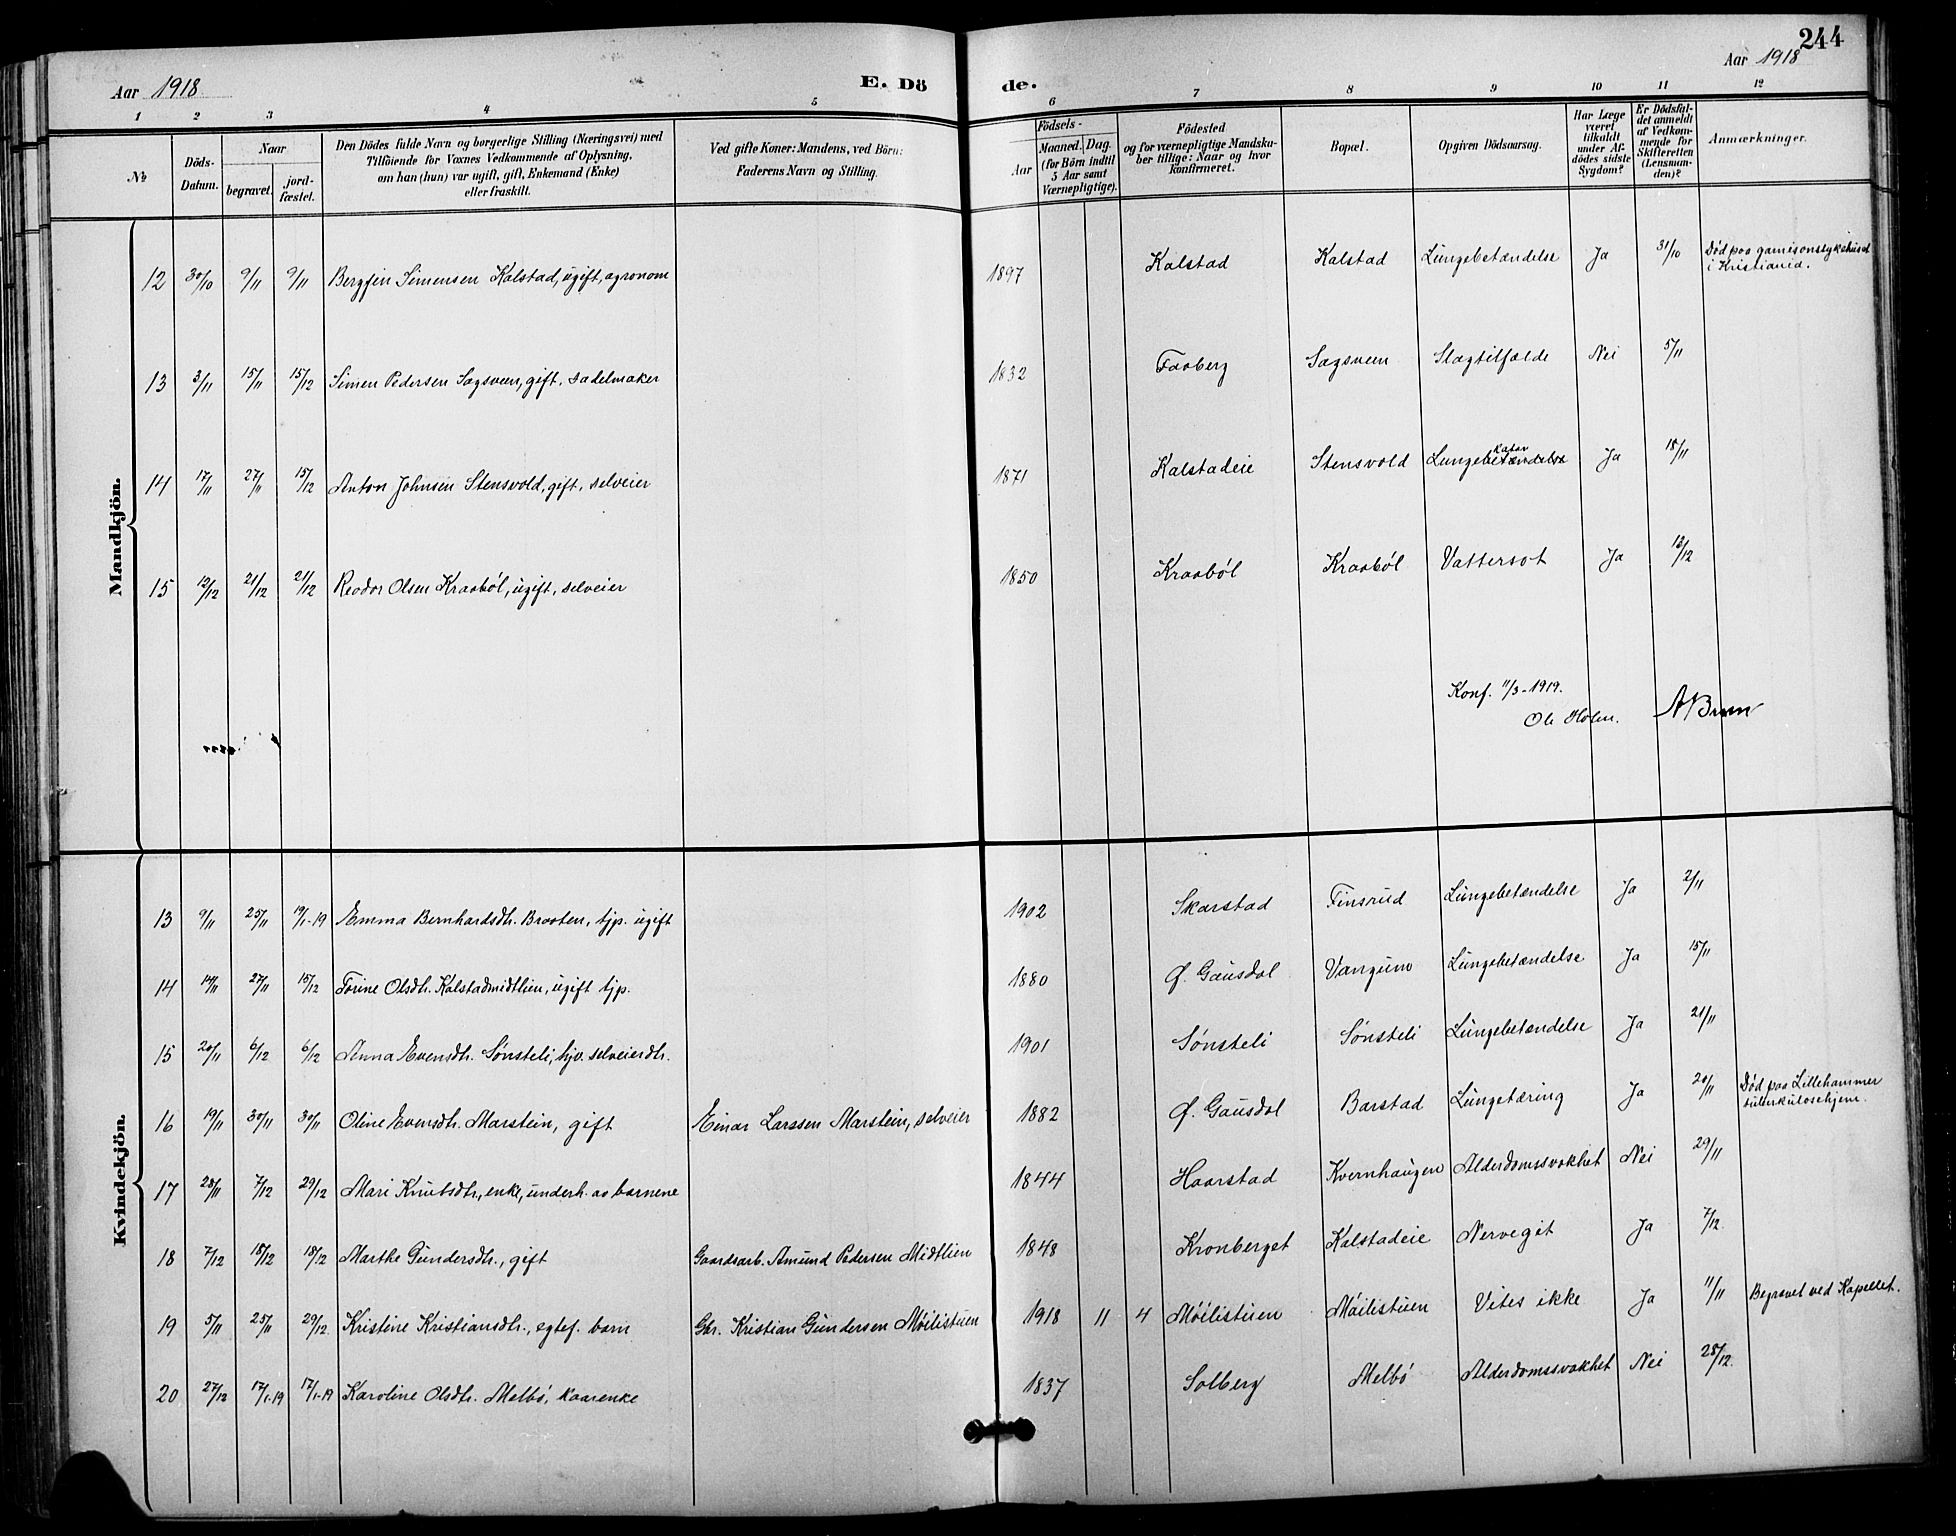 244
Aar 1918. E. Dö de. Aar 1918
1 2 3 4 5 6 7 8 9 10 11 12
№
Döds-Datum.
Naar
begravet.
jord-fæstet.
Den Dödes fulde Navn og borgerlige Stilling (Næringsvei) med
Tilföiende for Voxnes Vedkommende af Oplysning,
om han (hun) var ugift, gift, Enkemand (Enke)
eller fraskilt.
Ved gifte Koner: Mandens, ved Börn:
Faderens Navn og Stilling.
Födsels-
Aar
Maaned. Dag.
(for Börn indtil
5 Aar samt
Værnepligtige).
Födested
og for værnepligtige Mandska-
ber tillige: Naar og hvor
konfirmeret.
Bopæl.
Opgiven Dödsaarsag.
Har Læge
været
tilkaldt
under Af-
dödes sidste
Sygdom?
Er Dödsfal-
det anmeldt
af Vedkom-
mende for
Skifteretten
(Lensman-
den)?
Anmærkninger.
Mandkjön.
12 30/10 9/11 9/11 Bergfin Simensen Kalstad, ugift, agronom 1897 Kalstad Kalstad Lungebetændelse Ja 31/10 Død paa garnisonssykehuset
i Kristiania.
13 3/11 15/11 15/12 Simen Pedersen Sagsveen, gift, sadelmaker 1832 Faaberg Sagsveen Slagtilfælde Nei 5/11
14 17/11 27/11 15/12 Anton Johnsen Stensvold, gift, selveier 1871 Kalstadeie Stensvold Lungebetændelse Ja 18/11
katar
15 12/12 21/12 21/12 Reodor Olsen Kraabøl, ugift, selveier 1850 Kraabøl Kraabøl Vattersot Ja 12/12
Konf. 11/3-1919.
Ole Holen. A Bruun
Kvindekjön.
13 9/11 25/11 19/1-19 Emma Bernhardsdtr. Braaten, tjp. ugift 1902 Skarstad Finsrud Lungebetændelse Ja 2/11
14 14/11 27/11 15/12 Torine Olsdtr. Kalstadmidtlien, ugift tjp. 1880 Ø. Gausdal Vangum Lungebetændelse Ja 15/11
15 20/11 6/12 6/12 Anna Evensdtr. Sønsteli, hjv. selveierdtr. 1901 Sønsteli Sønsteli Lungebetændelse Ja 21/11
16 19/11 30/11 30/11 Oline Evensdtr. Marstein, gift Einar Larssen Marstein, selveier 1882 Ø. Gausdal Barstad Lungetæring Ja 20/11 Død paa Lillehammer
tuberkulosehjem.
17 28/11 7/12 29/12 Mari Knutsdtr., enke, underh. av barnene 1844 Haarstad Kvernhaugen Alderdomssvakhet Nei 29/11
18 7/12 18/12 18/12 Marthe Gundersdtr., gift Gaardsarb. Amund Pedersen Midtlien 1848 Kronberget Kalstadeie Nervegit Ja 7/12.
19 5/11 25/11 29/12 Kristine Kristiansdtr., egtef. barn Gbr. Kristian Gundersen Møilistuen 1918 11 4 Møilistuen Møilistuen Vites ikke Ja 11/11 Begravet ved Kapellet.
20 27/12 17/1.19 17/1-19 Karoline Olsdtr. Melbø, kaarenke 1837 Solberg Melbø Alderdomssvakhet Nei 28/12.